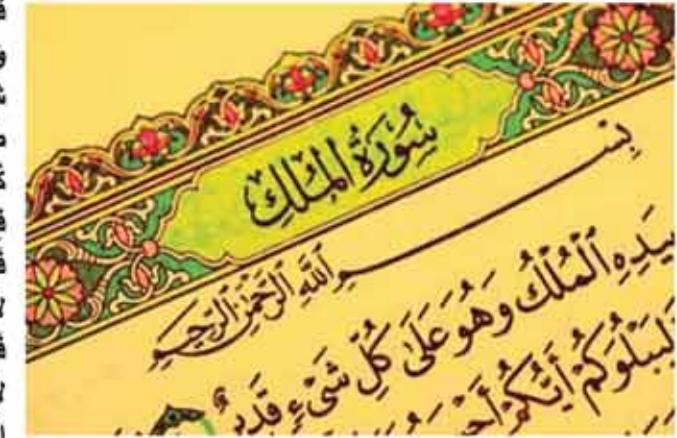 سُورَةُ المُلْكِ
بِسْمِ ٱللَّهِ ٱلرَّحْمَٰنِ ٱلرَّحِيمِ
بِيَدِهِ ٱلْمُلْكُ وَهُوَ عَلَىٰ كُلِّ شَىْءٍ قَدِيرٌ
لِيَبْلُوَكُمْ أَيُّكُمْ